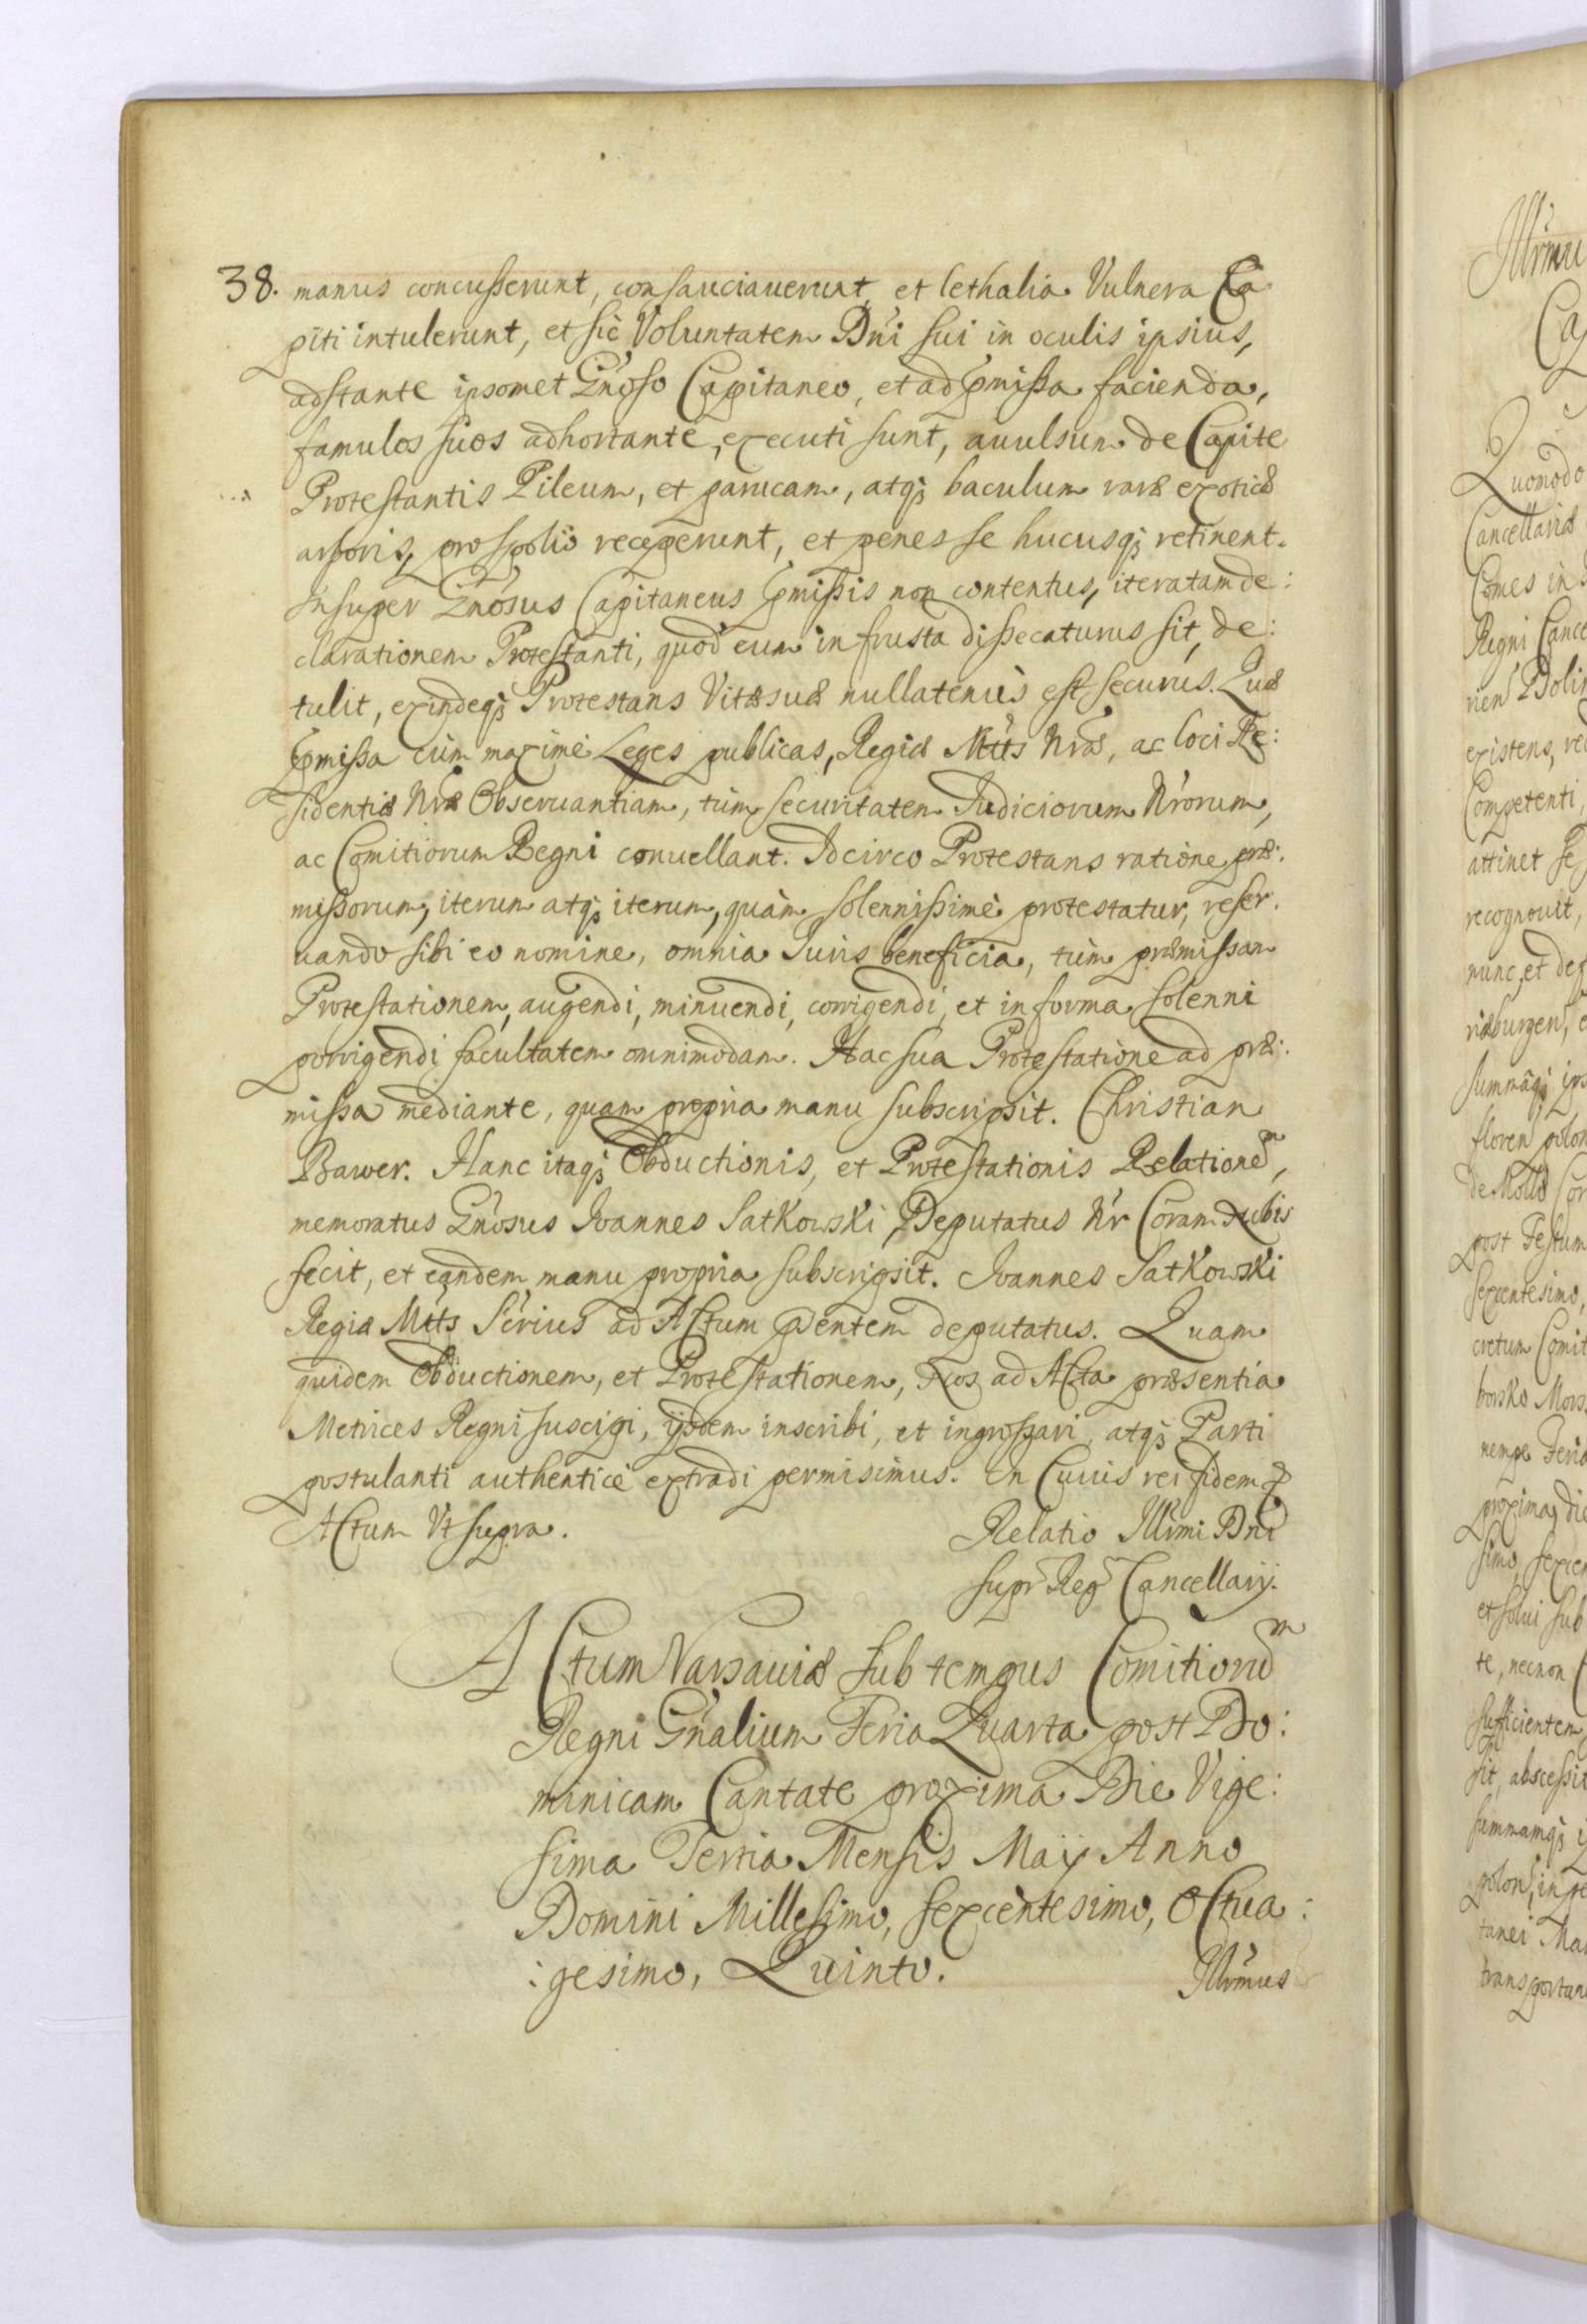 38. manus concusserunt, consauciauerunt, et lethalia Vulnera Ca
piti intulerunt, et sic Voluntatem Dni sui in oculis ipsius,
adstante ipsomet Gnoso Capitaneo, et ad pmissa facienda,
famulos suos adhortante, executi sunt, auulsum de Capite
Protestantis Pileum, et parucam, atq; baculum raræ exoticæ
arboris, pro spolio receperunt, et penes se hucusq; retinent.
Insuper Gnosus Capitaneus pmissis non contentus, iteratam de:
clarationem Protestanti, quod eum in frusta dissecaturus sit, de:
tulit, exindeq; Protestans Vitæ suæ nullatenus est securus. Quæ
pmissa cum maxime Leges publicas, Regiæ Mtts Nræ, ac loci Re:
sidentiæ Nræ Obseruantiam, tum securitatem Iudiciorum Nrorum,
ac Comitiorum Regni conuellant. Idcirco Protestans ratione præ:
missorum, iterum atq; iterum, quàm solennissimè protestatur, reser.
uando sibi eo nomine, omnia Iuris beneficia, tum præmissam
Protestationem, augendi, minuendi, corrigendi, et in forma solenni
porrigendi facultatem omnimodam. Hac sua Protestatione ad præ:
missa mediante, quam propria manu subscripsit. Christian
Bawer. Hanc itaq; Obductionis, et Protestationis Relationem,
memoratus Gnosus Ioannes Satkowski, Deputatus Nr Coram Nobis
fecit, et eandem manu propria subscripsit. Ioannes Satkowski
Regiæ Mtts Serius ad Actum pntem deputatus. Quam
quidem Obductionem, et Protestationem, Nos ad Acta præsentia
Metrices Regni suscipi, ijsdem inscribi, et ingrossari, atq; Parti
postulanti authenticè extradi permisimus. In Cuius rei fidem
Actum Vt supra.
Relatio Illrmi Dni
supr Reg Cancellarij.
Actum Varsauiæ sub tempus Comitiorum
Regni Gnalium Feria Quarta post Do:
minicam Cantate proxima Die Vige:
sima Tertia Mensis Maij Anno
Domini Millesimo, sexcentesimo, Octua:
:gesimo, Quinto.
Illrmus
Illrmu
Quomodo
Cancellariæ
Comes in
Regni Cance
existens,
Competenti,
attinet se
recognouit,
nunc, et de
post Festum
sexcentesimo,
cretum Comit
proxima, die
simo, sexcen
et solui sub
te, necnon
sufficientem
sit, abscessit
summamq;
transportan